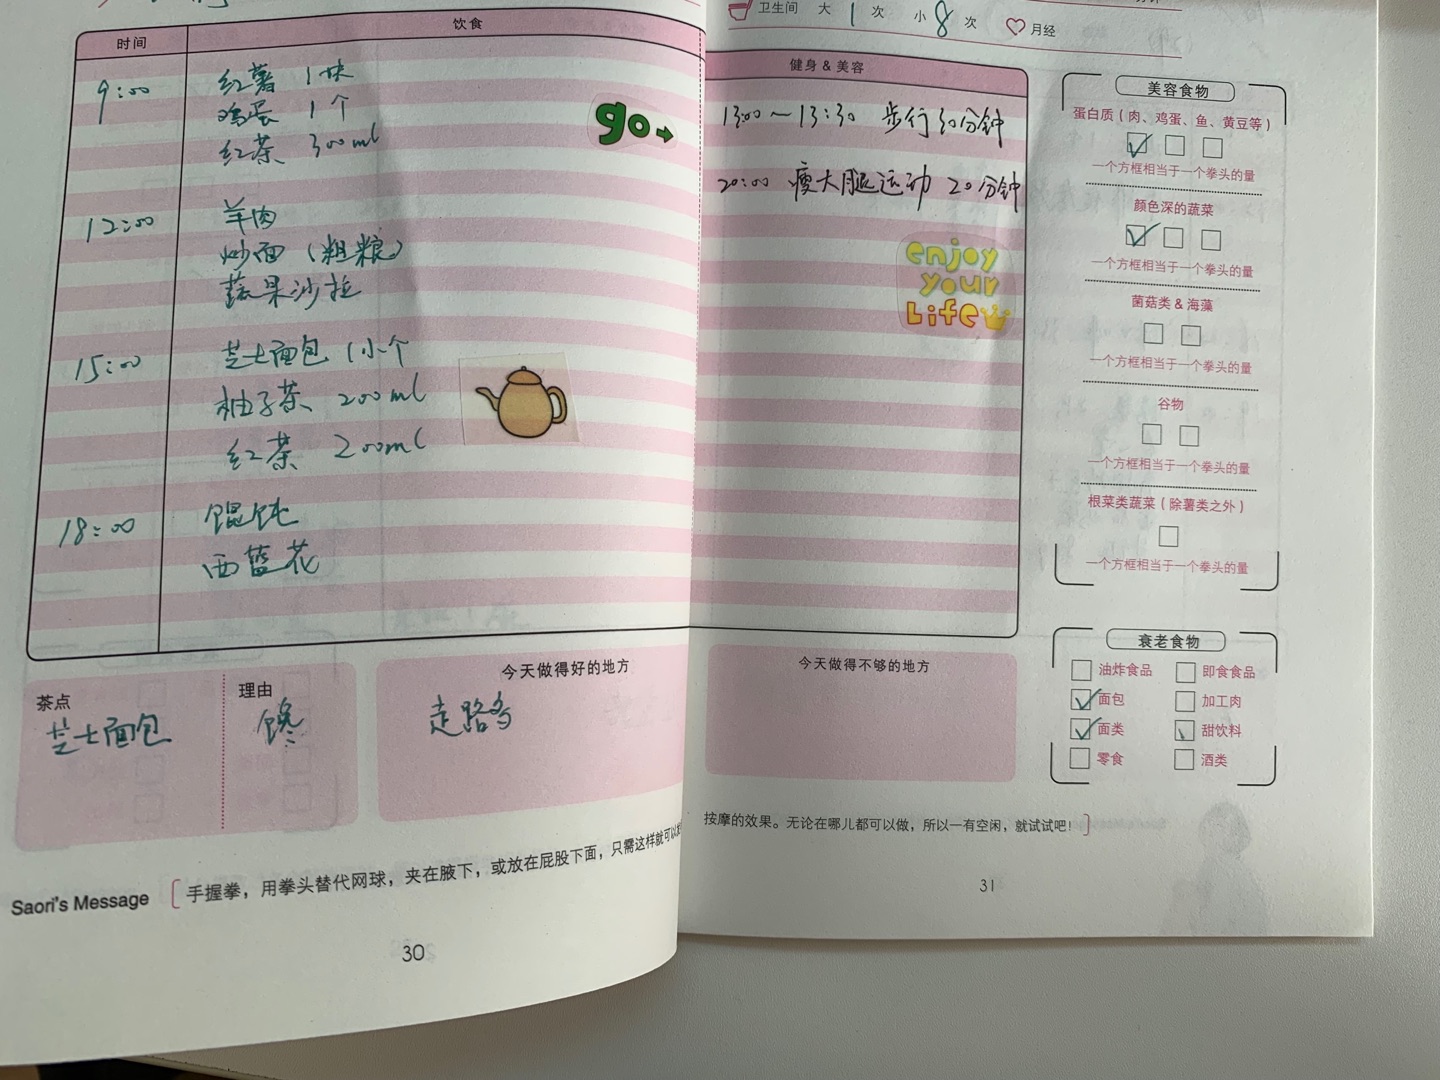 时间 饮食
9:00 红薯 1块
鸡蛋 1个
红茶 300ml
go
12:00 羊肉
炒面（粗粮）
蔬果沙拉
15:00 芝士面包 1小个
柚子茶 200ml
红茶 200ml
18:00 馄饨
西蓝花
茶点
芝士面包
理由
馋
今天做得好的地方
走路多
Saori's Message
手握拳，用拳头替代网球，夹在腋下，或放在屁股下面，只需这样就可以
30
卫生间 大 1 次 小 8 次 月经
健身 & 美容
13:00～13:30 步行30分钟
20:00 瘦大腿运动 20分钟
enjoy
your
Life
今天做得不够的地方
按摩的效果。无论在哪儿都可以做，所以一有空闲，就试试吧！
31
美容食物
蛋白质（肉、鸡蛋、鱼、黄豆等）
一个方框相当于一个拳头的量
颜色深的蔬菜
一个方框相当于一个拳头的量
菌菇类 & 海藻
一个方框相当于一个拳头的量
谷物
一个方框相当于一个拳头的量
根菜类蔬菜（除薯类之外）
一个方框相当于一个拳头的量
衰老食物
油炸食品 即食食品
面包 加工肉
面类 甜饮料
零食 酒类